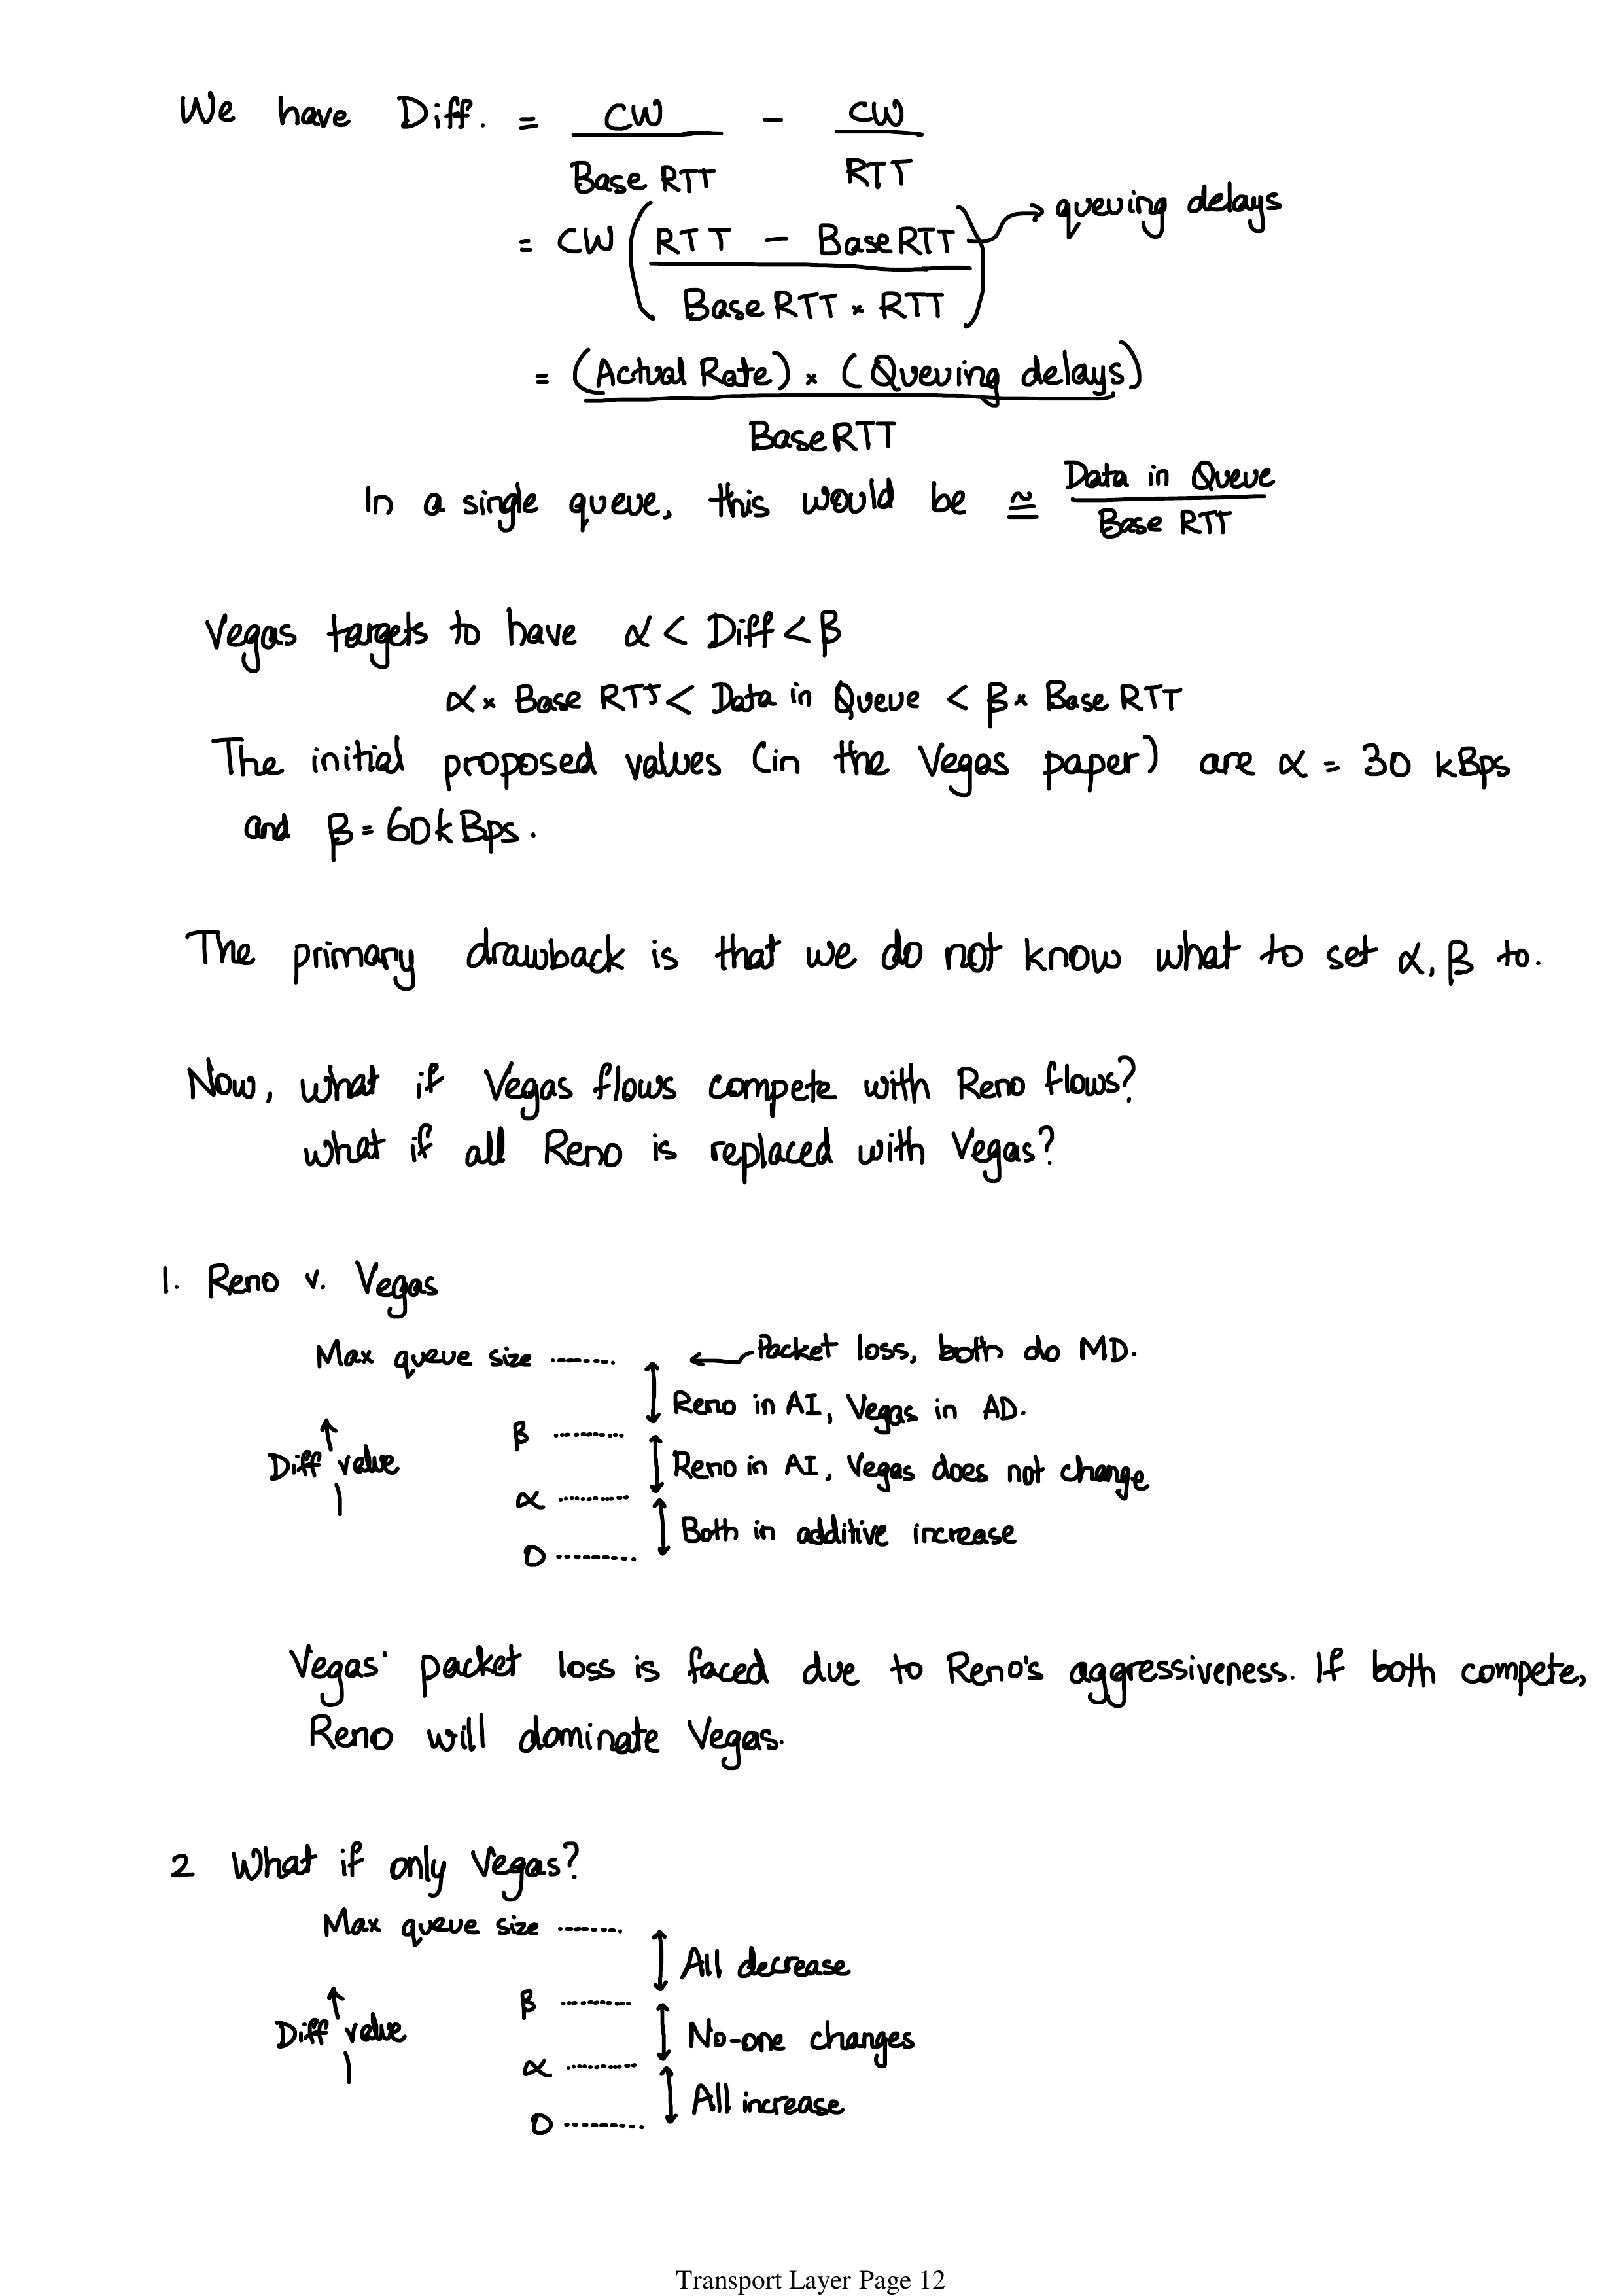 We have Diff. = CW / Base RTT - CW / RTT
= CW ( RTT - Base RTT / Base RTT × RTT ) → queuing delays
= (Actual Rate) × (Queuing delays) / Base RTT
In a single queue, this would be ≅ Data in Queue / Base RTT
Vegas targets to have α < Diff < β
α × Base RTT < Data in Queue < β × Base RTT
The initial proposed values (in the Vegas paper) are α = 30 kBps
and β = 60kBps.
The primary drawback is that we do not know what to set α, β to.
Now, what if Vegas flows compete with Reno flows?
what if all Reno is replaced with Vegas?
1. Reno v. Vegas
Max queue size ........ ← Packet loss, both do MD.
Reno in AI, Vegas in AD.
β .........
Diff value
Reno in AI, Vegas does not change
α .........
Both in additive increase
0 .........
Vegas' packet loss is faced due to Reno's aggressiveness. If both compete,
Reno will dominate Vegas.
2 What if only Vegas?
Max queue size ........
All decrease
β .........
Diff value
No-one changes
α .........
All increase
0 .........
Transport Layer Page 12